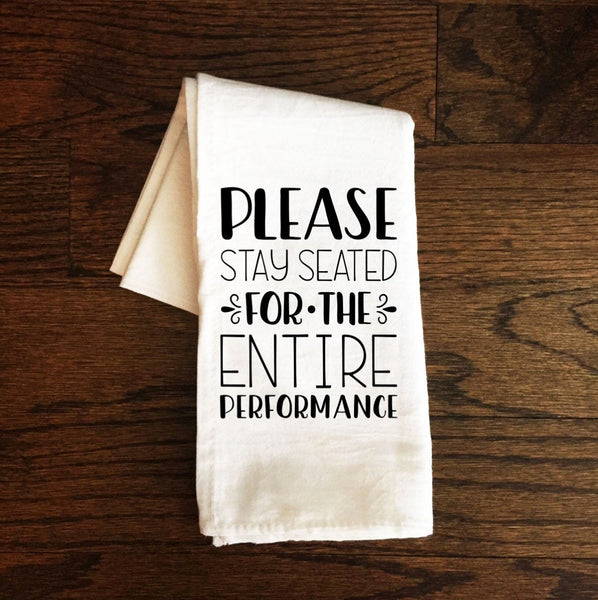 PLEASE
STAY SEATED
FOR • THE
ENTIRE
PERFORMANCE